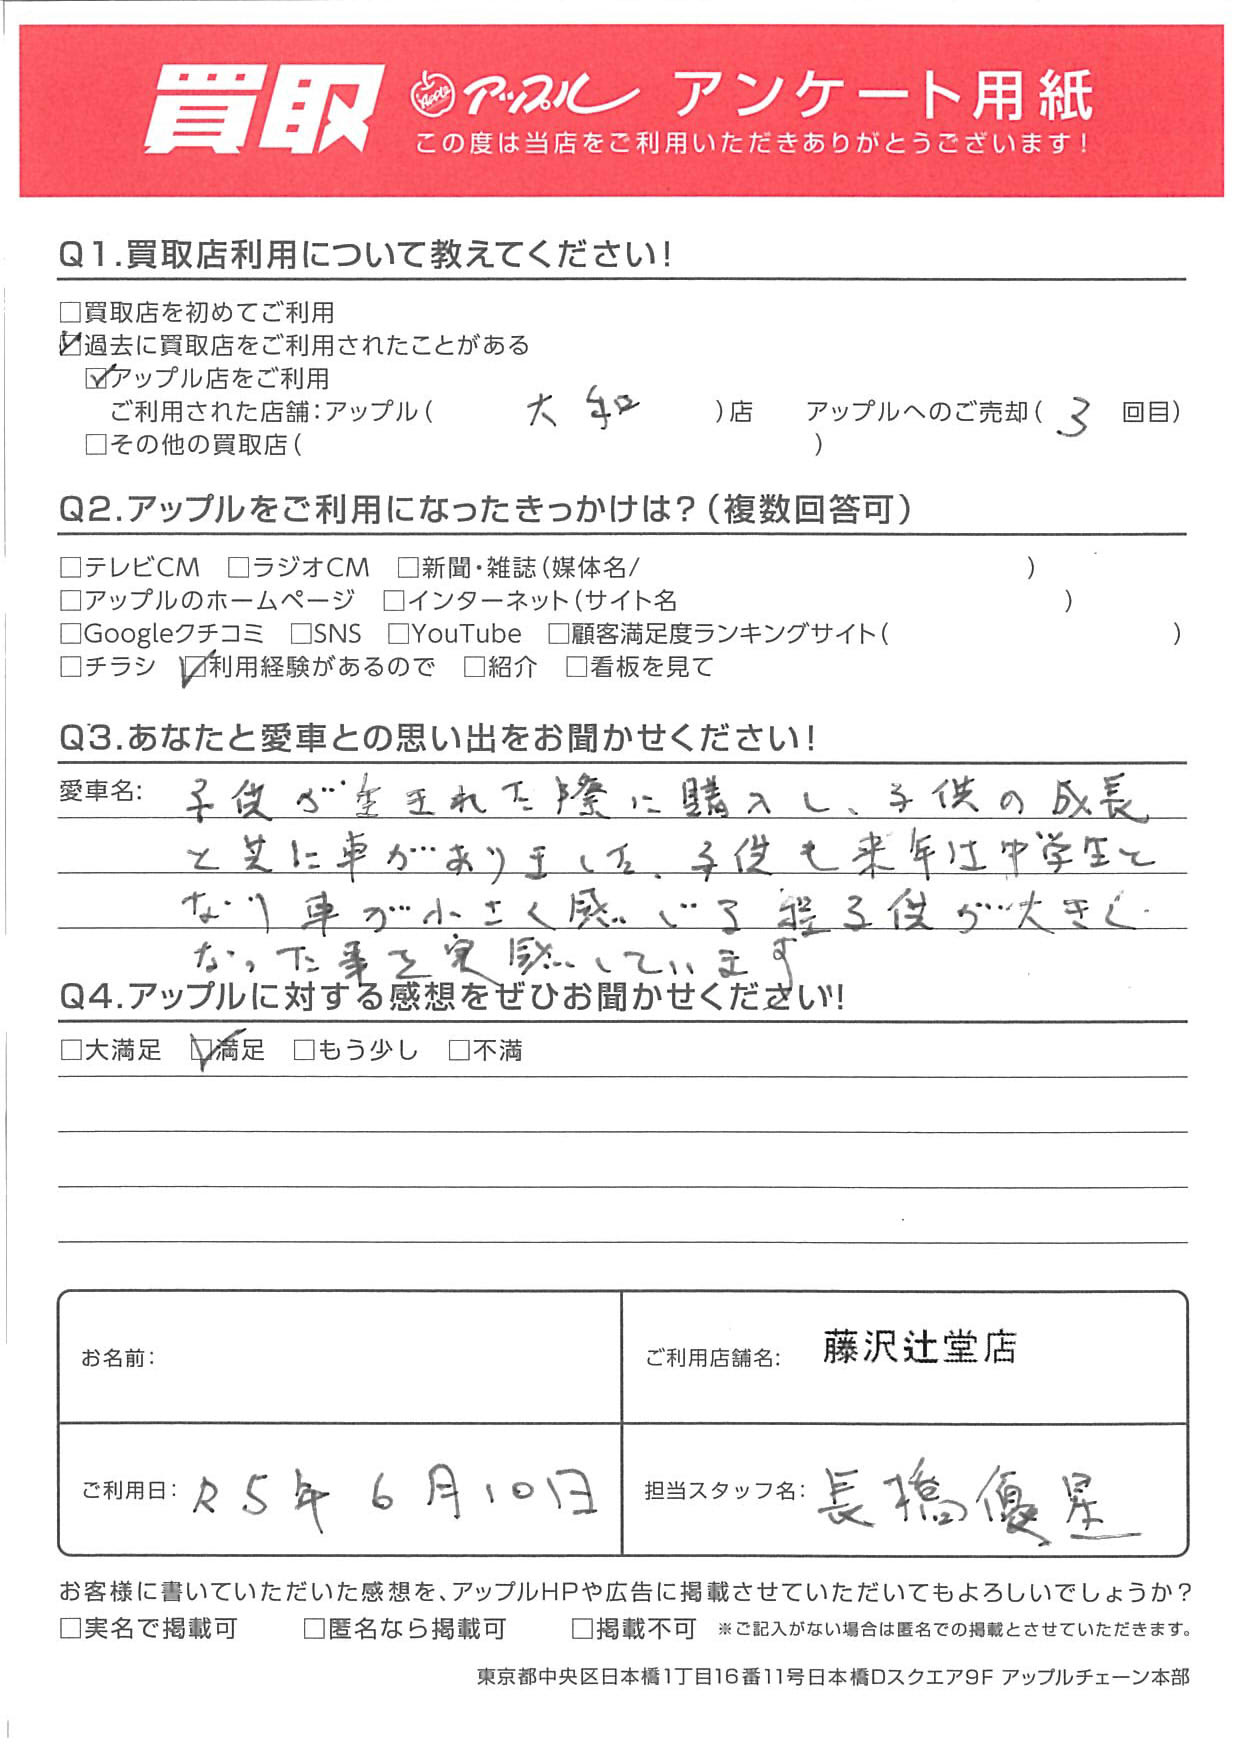 買取 Apple アップル アンケート用紙
この度は当店をご利用いただきありがとうございます!
Q1.買取店利用について教えてください!
□買取店を初めてご利用
☑過去に買取店をご利用されたことがある
☑アップル店をご利用
ご利用された店舗:アップル( 大和 )店 アップルへのご売却( 3 回目)
□その他の買取店( )
Q2.アップルをご利用になったきっかけは?(複数回答可)
□テレビCM □ラジオCM □新聞・雑誌(媒体名/ )
□アップルのホームページ □インターネット(サイト名 )
□Googleクチコミ □SNS □YouTube □顧客満足度ランキングサイト( )
□チラシ ☑利用経験があるので □紹介 □看板を見て
Q3.あなたと愛車との思い出をお聞かせください!
愛車名: 子供が生まれた際に購入し、子供の成長
と共に車がありました。子供も来年は中学生と
なり車が小さく感じる程子供が大きく
なった事を実感しています
Q4.アップルに対する感想をぜひお聞かせください!
□大満足 ☑満足 □もう少し □不満
お名前: ご利用店舗名: 藤沢辻堂店
ご利用日: R5年6月10日 担当スタッフ名: 長橋優星
お客様に書いていただいた感想を、アップルHPや広告に掲載させていただいてもよろしいでしょうか?
□実名で掲載可 □匿名なら掲載可 □掲載不可 ※ご記入がない場合は匿名での掲載とさせていただきます。
東京都中央区日本橋1丁目16番11号日本橋Dスクエア9F アップルチェーン本部